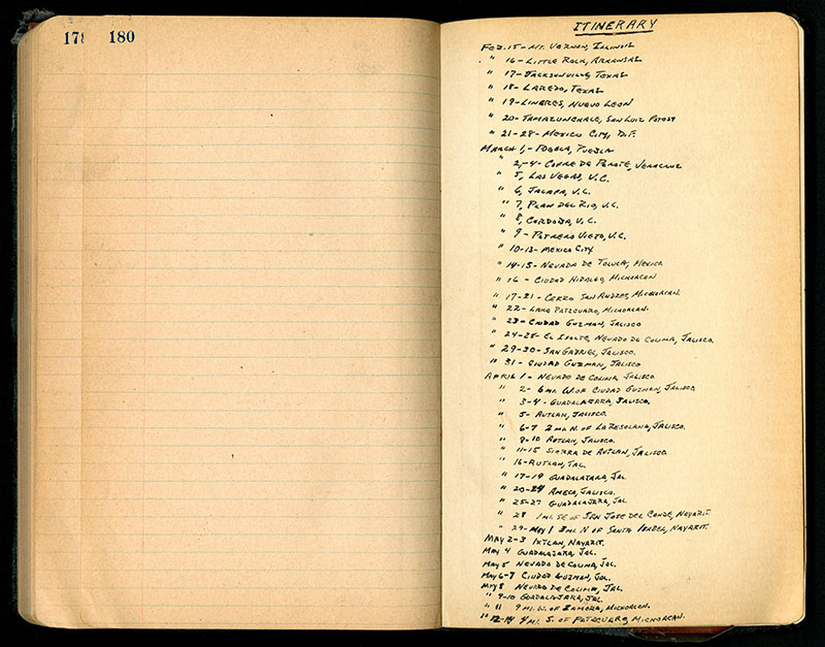 178 180
ITINERARY
FEB. 15 - MT. VERNON, ILLINOIS
" 16 - LITTLE ROCK, ARKANSAS
" 17 - JACKSONVILLE, TEXAS
" 18 - LAREDO, TEXAS
" 19 - LINARES, NUEVO LEON
" 20 - TAMAZUNCHALE, SAN LUIZ POTOSI
" 21-28 - MEXICO CITY, D.F.
MARCH 1, - PUEBLA, PUEBLA
" 2,-4 - COFRE DE PEROTE, VERACRUZ
" 5, LAS VEGAS, V.C.
" 6, JALAPA, V.C.
" 7, PLAN DEL RIO, V.C.
" 8, CORDOBA, V.C.
" 9 - POTRERO VIEJO, V.C.
" 10-13 - MEXICO CITY
" 14-15 - NEVADO DE TOLUCA, MEXICO
" 16 - CIUDAD HIDALGO, MICHOACAN
" 17-21 - CERRO SAN ANDRES, MICHOACAN.
" 22 - LAKE PATZCUARO, MICHOACAN.
" 23 - CIUDAD GUZMAN, JALISCO
" 24-28 - EL ISOLTE, NEVADO DE COLIMA, JALISCO.
" 29-30 - SAN GABRIEL, JALISCO.
" 31 - CIUDAD GUZMAN, JALISCO
APRIL 1 - NEVADO DE COLIMA, JALISCO
" 2 - 6 MI. W. OF CIUDAD GUZMAN, JALISCO
" 3-4 - GUADALAJARA, JALISCO.
" 5 - AUTLAN, JALISCO.
" 6-7 2 MI. N. OF LA RESOLANA, JALISCO.
" 8-10 AUTLAN, JALISCO.
" 11-15 SIERRA DE AUTLAN, JALISCO
" 16 - AUTLAN, JAL.
" 17-19 GUADALAJARA, JAL
" 20-24 AMECA, JALISCO.
" 25-27 GUADALAJARA, JAL.
" 28 1 MI. SE OF SAN JOSE DEL CONDE, NAYARIT.
" 29 - MAY 1 3 MI. N OF SANTA ISABEL, NAYARIT.
MAY 2-3 IXTLAN, NAYARIT.
MAY 4 GUADALAJARA, JAL.
MAY 5 NEVADO DE COLIMA, JAL.
MAY 6-7 CIUDAD GUZMAN, JAL.
MAY 8 NEVADO DE COLIMA, JAL.
" 9-10 GUADALAJARA, JAL.
" 11 9 MI. W. OF ZAMORA, MICHOACAN.
" 12-14 4 MI. S. OF PATZCUARO, MICHOACAN.